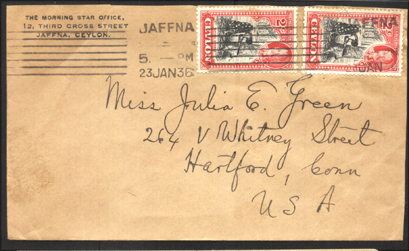 THE MORNING STAR OFFICE,
12, THIRD CROSS STREET
JAFFNA, CEYLON.
JAFFNA
5. — PM
23 JAN 36
CEYLON
2
CEYLON
JAFFNA
JAN
Miss Julia E. Green
264 V Whitney Street
Hartford, Conn
U S A